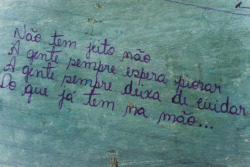 Não tem jeito não
A gente sempre espera piorar
A gente sempre deixa de cuidar
Do que já tem na mão...